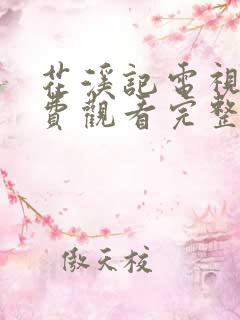 茫溪記電視
費觀看完整
傲天校